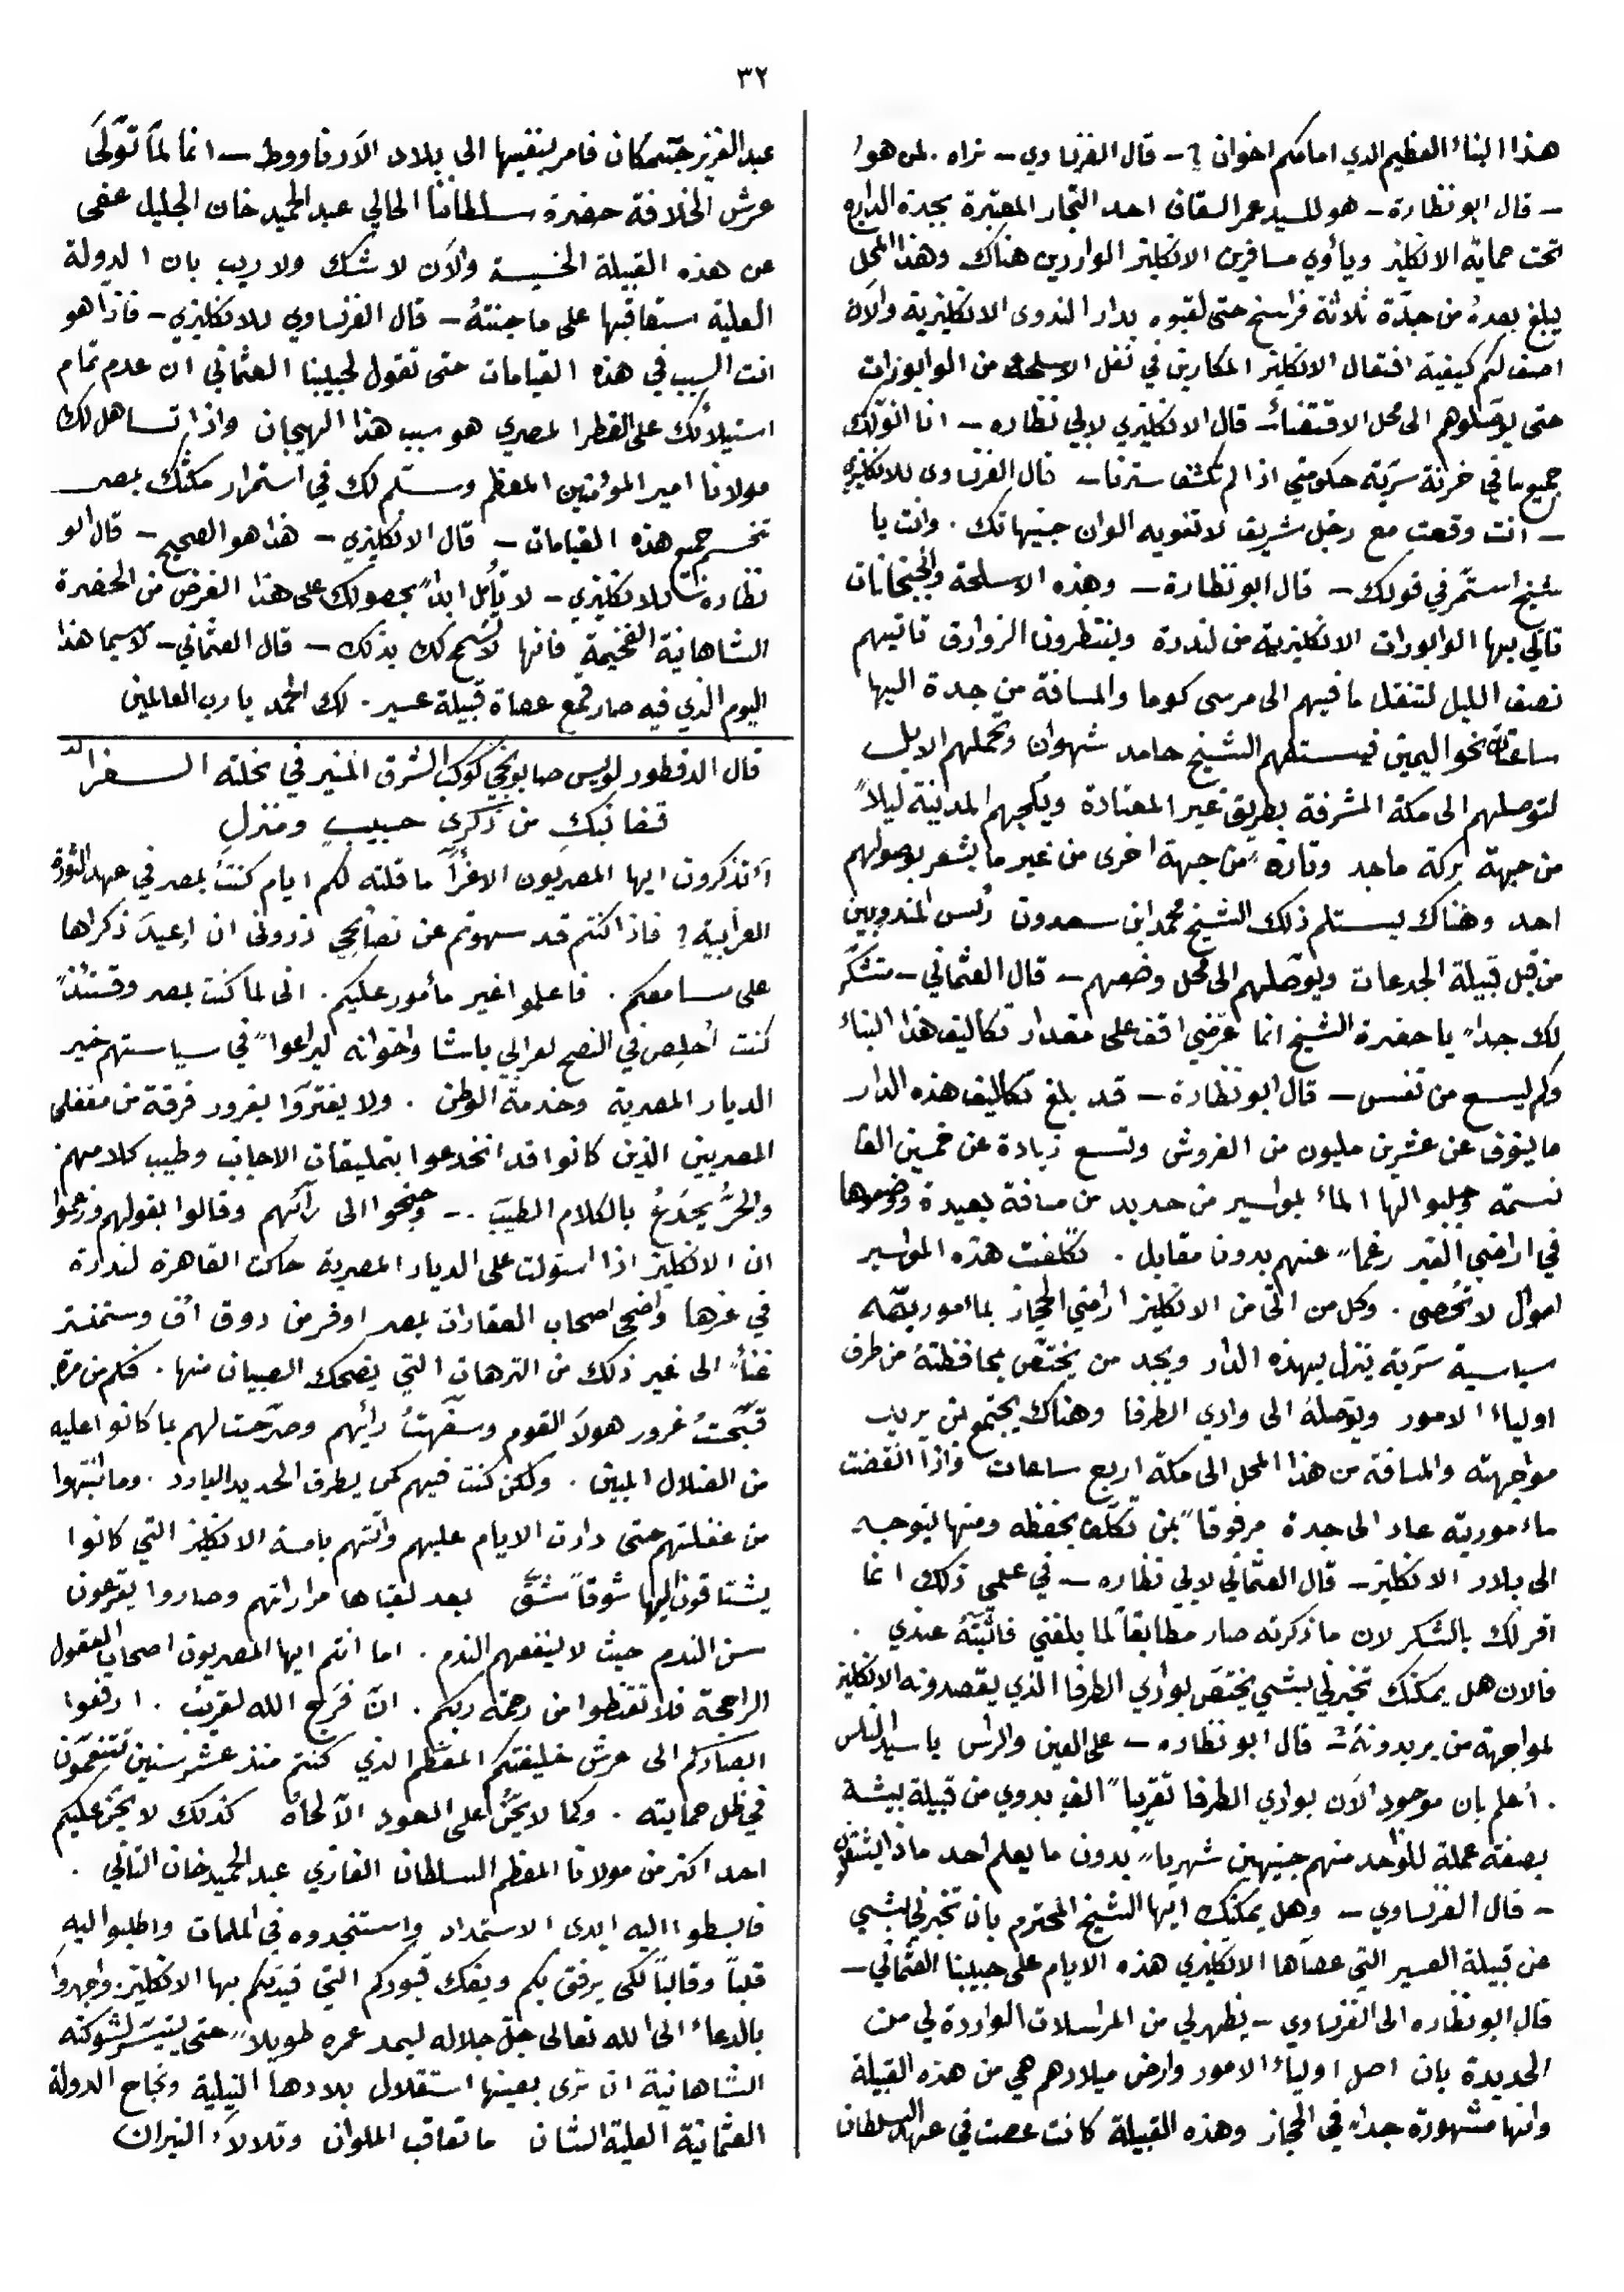 ٣٢
هذا البناء العظيم الذي امامكم اخوان ? - قال الفرنساوي - نراه . لمن هو
- قال ابو نظارة - هو للسيد عمر السقاف احد التجار المعتبرة بجدة
تحت حماية الانكليز ويأوي مسافرين الانكليز الواردين هناك وهذا المحل
يبلغ بعدهُ من جدّة ثلاثة فراسخ حتى لقبوه بدار الندوى الانكليزية والآن
اصف لكم كيفية افتعال الانكليز المكارين في نقل الاسلحة من الوابورات
حتى يوصّلوهم الى محل الاقتضاء - قال الانكليزي لابي نظاره - انا
جميع ما في خزنة سرّية حكومتي اذا لم تكشف سترنا - قال الفرنساوى للانكليزي
- انت وقعت مع رجل شريف لا تغويه الوان جنيهاتك . وانت يا
شيخ استمّر في قولك - قال ابو نظارة - وهذه الاسلحة والجبخانات
تأتي بها الوابورات الانكليزية من لندرة وينتظرون الزوارق تاتيهم
نصف الليل لتنقل ما فيهم الى مرسى كوما والمسافة من جدة اليها
ساعتان نحو اليمين فيستلمهم الشيخ حامد شهوان وتحملهم الابل
لتوصلهم الى مكة المشرفة بطريق غير المعتادة ويكبجهم المدينة ليلاً
من جهة بركة ماجد وتارة من جهة اخرى من غير ما يشعر بوصولهم
احد وهناك يستلم ذلك الشيخ محمد ابن سعدون رئس المندوبين
من قبل قبيلة الجدعات ويوصّلهم الى محل وضعهم - قال العثماني - متشكّر
لك جداً يا حضرة الشيخ انما غرضي اقف على مقدار تكاليف هذا البناء
وكم ليسع من نفس - قال ابو نظارة - قد بلغ تكاليف هذه الدار
ما ينوف عن عشرين مليون من الغروش وتسع زيادة عن خمسين الفا
نسمة وجلبوا لها الماء بمواسير من حديد من مسافة بعيدة ووضعوها
في اراضي الغير رغماً عنهم بدون مقابل . تكلفت هذه المواسير
اموال لا تُحصى . وكل من اتى من الانكليز اراضي الحجاز بمأموريّة
سياسية سرّية ينزل بهذه الدار ويجد من يختصّ بمحافظتهُ من طرف
اولياء الامور ويوّصلهُ الى وادي الطرفا وهناك يجتمع بمن يريد
مواجهته والمسافة من هذا المحل الى مكة اربع ساعات واذا انقضت
مأموريته عاد الى جدة مرفوقاً بمن تكلّف بحفظه ومنها ليتوجه
الى بلاد الانكليز - قال العثماني لابي نظاره - في علمي ذلك انما
اقر لك بالشكر لان ما ذكرته صار مطابقاً لما بلغني فاثبّتهُ عندي .
فالان هل يمكنك تخبرني بشي يختصّ بوادي الطرفا الذي يقصدونه الانكليز
لمواجهة من يريدونهُ - قال ابو نظاره - على العين والرأس يا سيد الناس
. أعلم بان موجود الآن بوادي الطرفا تقريباً الف بدوي من قبيلة بيشة
بصفة عملة للواحد منهم جنيهين شهرياً بدون ما يعلم احد ماذا
- قال الفرنساوي - وهل يمكنك ايها الشيخ المحترم بان تخبرني بشي
عن قبيلة العسير التي عصاها الانكليزي هذه الايام على حبيبنا العثماني -
قال ابو نظاره الى الفرنساوي - يظهر لي من المراسلات الواردة لي من
الحديدة بان اصل اولياء الامور وارض ميلادهم هي من هذه القبيلة
وانها مشهورة جداً في الحجاز وهذه القبيلة كانت عصت في عهد السلطان
عبد العزيز جنتمكان فامر بنفيها الى بلاد الآرناووط - انما لمّا تّولّى
عرش الخلافة حضرة سلطاننا الحالي عبد الحميد خان الجليل عفى
عن هذه القبيلة الخسيسة والآن لا شك ولا ريب بان الدولة
العلية ستعاقبها على ما جنتهُ - قال الفرنساوي للانكليزي - فاذا هو
انت السبب في هذه القيامات حتى تقول لحبيبنا العثماني ان عدم تمام
استيلائك على القطر المصري هو سبب هذا الهيجان واذا تساهل لك
مولانا امير المؤمنين المعظم وسلّم لك في استمرار مكثك بمصر
تنحسم جميع هذه القيامات - قال الانكليزي - هذا هو الصحيح - قال ابو
نظاره للانكليزي - لا تأمل ابداً بحصولك على هذا الغرض من الحضرة
الشاهانية الفخيمة فانها لا تسمح لك بذلك - قال العثماني - لاسيما هذا
اليوم الذي فيه صار قمع عصاة قبيلة عسير . لك الحمد يا رب العالمين
قال الدقطور لويس صابونجي كوكب الشرق المنير في نحلته الغراء
قفا نبكِ من ذكرى حبيبٍ ومنزلِ
أتذكرون ايها المصريون الاعزّاء ما قلته لكم ايام كنتُ بمصر في عهد الثورة
العرابية ? فاذا كنتم قد سهوتم عن نصائحي ذروني ان اعيدَ ذكراها
على مسامعكم . فاعلموا غير مأمور عليكم . انى لما كنت بمصر وقتئذٍ
كنت أخلِص في النصح لعرابي باشا واخوانه ليراعوا في سياستهم خير
الديار المصرية وخدمة الوطن . ولا يغترّوا بغرور فرقة من مغفلى
المصريين الذين كانوا قد انخدعوا بتمليقات الاجانب وطيب كلامهم
والحُرُّ يُخدَعُ بالكلام الطيبّ . - وجنحوا الى رأئهم وقالوا بقولهم وزعموا
ان الانكليز اذا استولت على الديار المصرية حاكت القاهرة لندرة
في عزها واضحى اصحاب العقارات بمصر اوفر من دوق أف وستمنستر
غنىً الى غير ذلك من الترهات التي يضحك الصبيان منها . فكم من مرة
قبّحتُ غرور هولآء القوم وسفّهتُ رائهم وصرّحت لهم بما كانوا عليه
من الضلال المبين . ولكن كنت فيهم كمن يطرق الحديد البارد . وما انتبهوا
من غفلتهم حتى دارت الايام عليهم واتتهم بامة الانكليز التي كانوا
يشتاقون اليها شوقاً بعد لقياها مراراتهم وصاروا يقرعون
سن الندم حيث لا ينفعهم الندم . اما انتم ايها المصريون اصحاب العقول
الراجحة فلا تقنطوا من رحمة ربكم . انّ فَرَج الله لقريبٌ . ارفعوا
ابصاركم الى عرش خليفتكم المعظّم الذي كنتم منذ عشر سنين تتنعّمون
في ظل حمايته . وكما لا يحّنُّ على العود الاّ لحاهُ كذلك لا يحنّ عليكم
احد اكثر من مولانا المعظم السلطان الغازي عبد الحميد خان الثاني .
فابسطوا اليه ايدى الاستمداد واستنجدوه في الملمات واطلبوا اليه
قلباً وقالباً لكى يرفق بكم ويفك قيودكم التي قيّدكم بها الانكليز . واجهروا
بالدعاء الى الله تعالى جلّ جلاله ليمد عمره طويلاً حتى يتيسّر لشوكته
الشاهانية ان ترى بعينها استقلال بلادها النيلية ونجاح الدولة
العثمانية العلية الشان ما تعاقب الملوان وتلالأ النيران